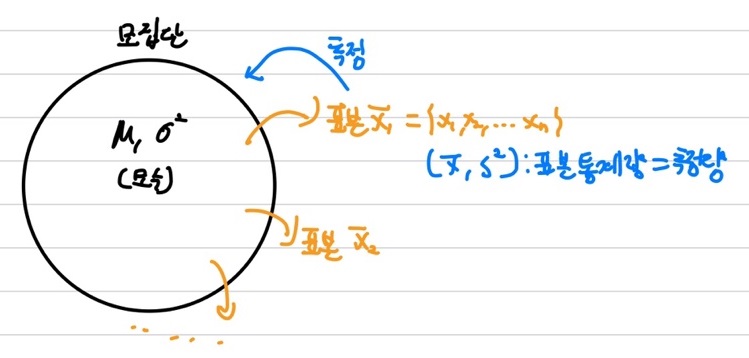 모집단
추정
μ, σ²
(모수)
표본 x̄₁ = {x₁, x₂, ... xₙ}
(x̄, s²) : 표본통계량 = 추정량
표본 x̄₂